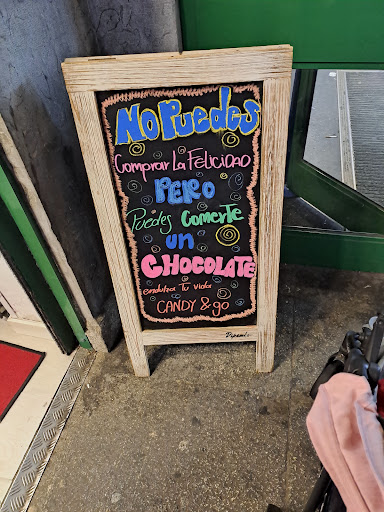 No Puedes
comprar La Felicidad
PERO
Puedes Comerte
un
CHOCOLATE
endulza Tu vida
CANDY & go